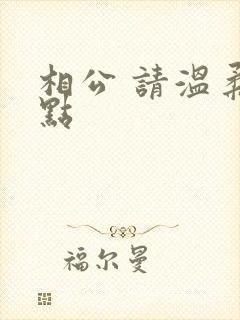 相公 請溫柔
點
福尔曼